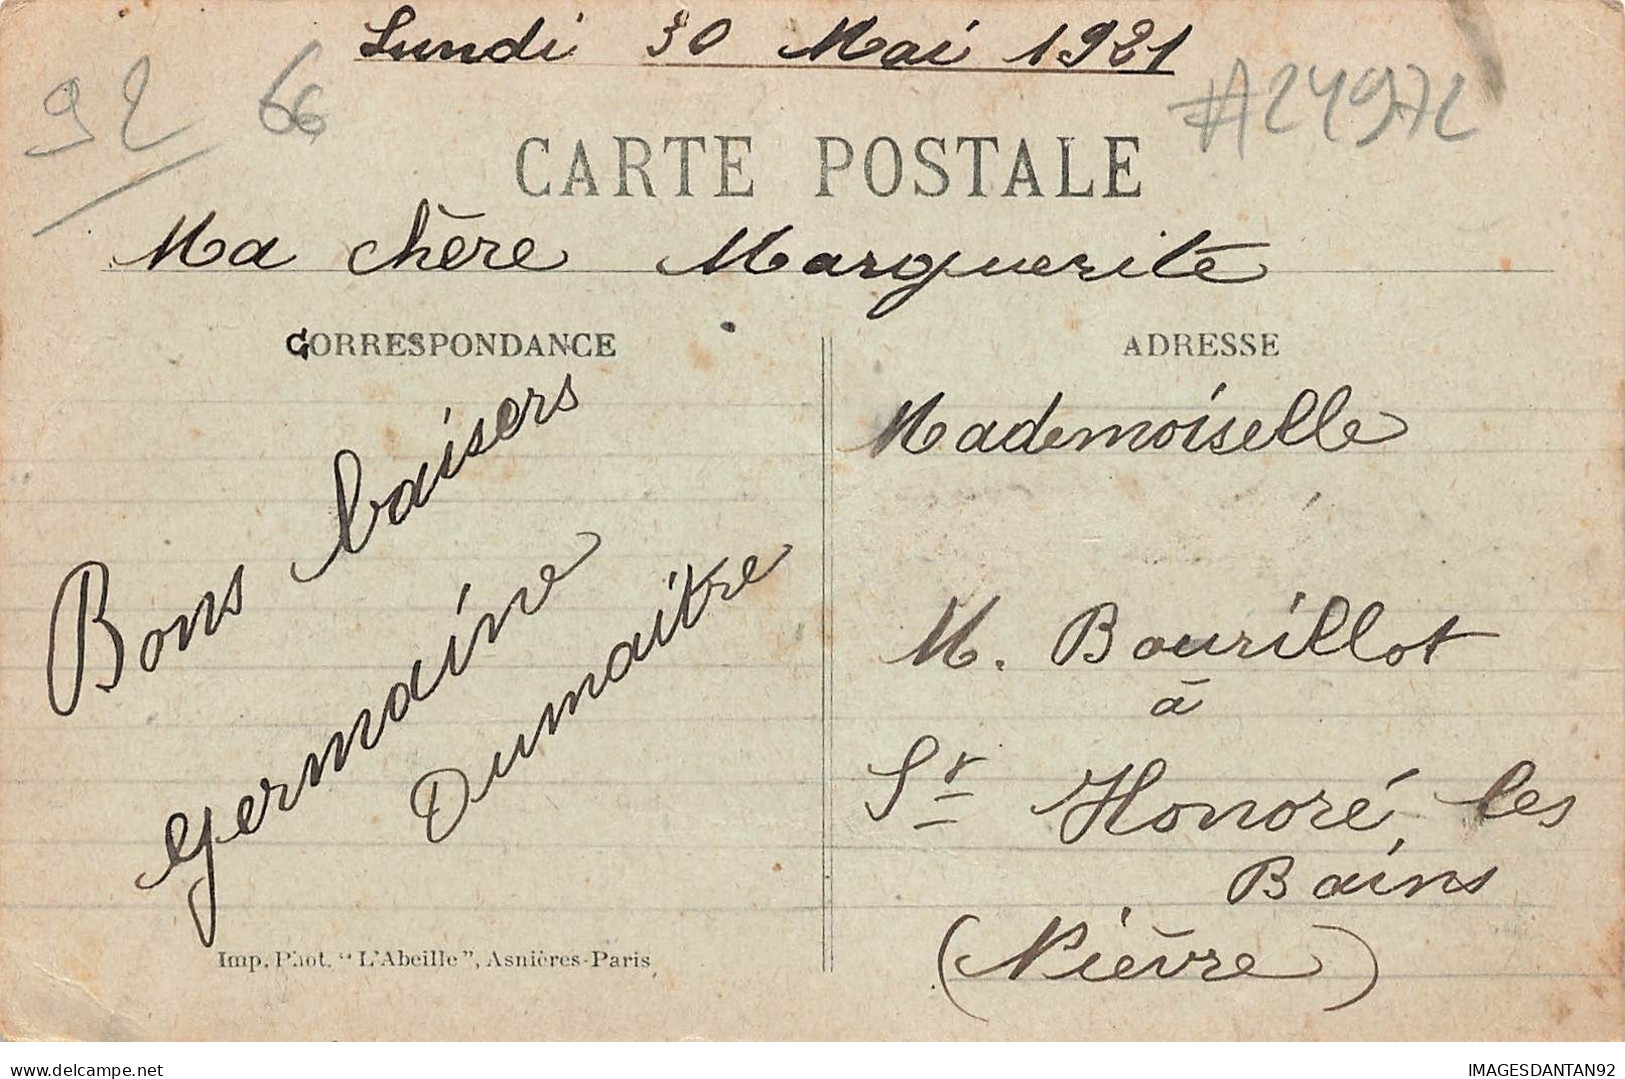 Lundi 30 Mai 1921
92 66 #24972
CARTE POSTALE
Ma chère Marguerite
CORRESPONDANCE
ADRESSE
Bons baisers
Germaine
Dumaitre
Mademoiselle
M. Bourillot
à
St Honoré les
Bains
(Nièvre)
Imp. Phot. "L'Abeille", Asnières-Paris
delcampe.net
IMAGESDANTAN92